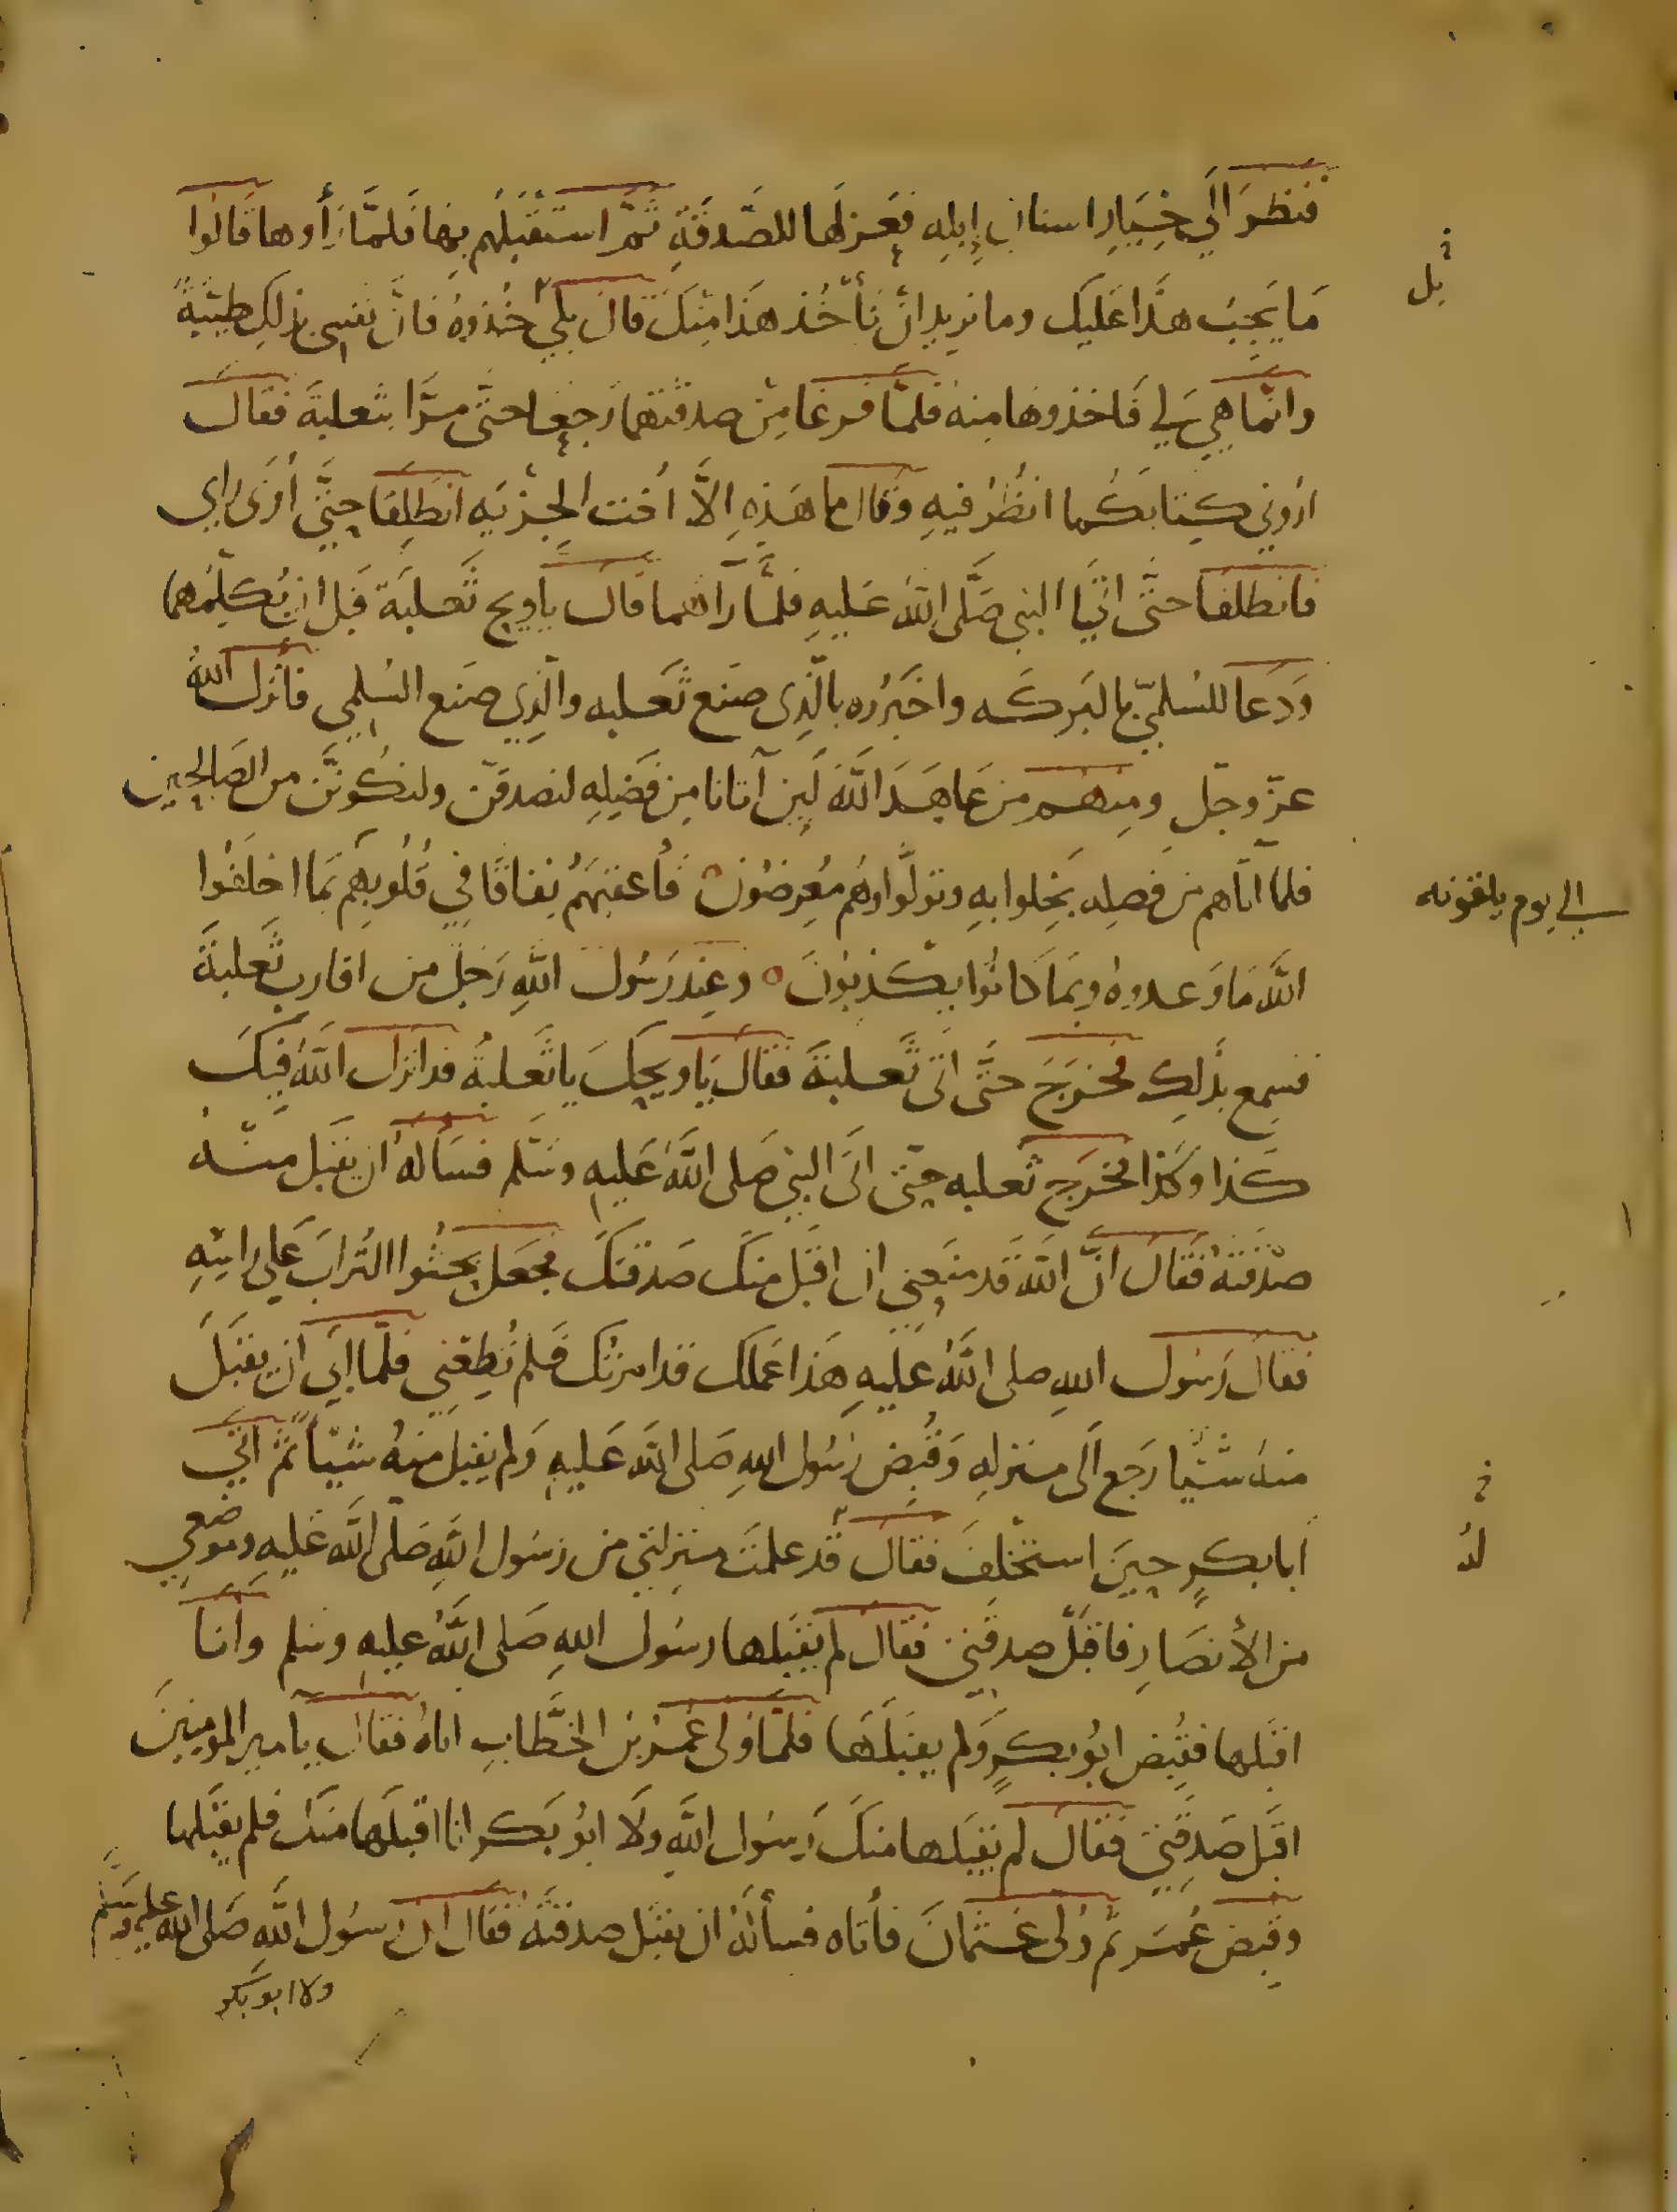 فنظر الى خِيَارِ اسنان إبلِه فعزلها للصَّدقَةِ ثمّ استَقبَلَهُم بِهَا فَلمَّا رَأوها قَالُوا
بل
مَا يَجِبُ هذَا عَليك وما نريد انْ نأخُذ هَذا مِنكَ قالَ بلى خُذوهُ فانَّ نفسِى بذلكِ طيّبةٌ
وانّما هِي لِي فَاخذوهَا مِنهُ فلمّا فرغَا مِنْ صدقتهما رَجعَا حتَّى مرَّا بثعلبةَ فقالَ
ارُوني كِتابكُما انظُرْ فيهِ وقال ما هَذِهِ اِلَّا اُخت الجِزْيَه انطَلِقَا حتَّى أرَى رايى
فانطلقَا حتَّى اتَيَا النبى صَلَّى اللهُ عَليهِ فلمَّا رَآهُما قالَ ياويح ثَعلبَةَ قَبل ان يُكلّمُهما
وَدَعا للسُلمِيّ بالبَركَه واخبَرُوه بالَّذِى صنع ثَعلبه والَّذِي صَنع السُلمِى فانزل اللهُ
عزّ وجلّ ومِنهُم من عَاهَدَ اللَّهَ لَئِن آتانا مِن فَضلِهِ لنصدقَن ولنكُونَنَّ من الصَالحِين
فلمّا آتاهم من فَضلِه بَخِلوا بهِ وتولَّوا وهُم مُعِرضُون فَاَعقبَهُم نِفاقًا فِي قُلُوبِهِم بَمَا اخلَفُوا
الى يوم يلقونه
اللَّهَ مَا وَعدوهُ وبمَا كَانُوا يكذبُونَ ٥ وَعِندَ رَسُولِ اللَّهِ رَجلٌ من اقارب ثَعلبَةَ
فسِمع بذَلِك فخرَجَ حتَّى اتى ثَعلبَةَ فقالَ يَا ويحكَ يا ثَعلبةُ قد انزل اللَّهُ فِيكَ
كَذا وكَذا فخرَج ثعلبه حتّى اتَى النبي صَلى اللَّهُ عَليهِ وسَلّم فسَألهُ ان يقبَل منهُ
صدَقتهُ فقَالَ انّ اللَّهَ قَد منعَنِي ان اقبَل منكَ صَدقتكَ فجَعلَ يحثُوا التُرابَ عَلى راسِهِ
فقالَ رَسُول اللهِ صلى اللَّهُ عَليهِ هَذا عَملكَ قد امرتُكَ فَلم تُطِعْنِي فلمّا ابَى ان يقبَلَ
منهُ شيْئًا رَجع اَلى منزلِهِ وَقُبِض رَسُول اللهِ صَلى اللَّهُ عَليهِ وَلم يقبل مِنهُ شيْئًا ثمّ اتَى
ابَا بكرٍ حِينَ استُخْلِفَ فقالَ قد علمتَ منزلتي من رَسُول اللَّهِ صَلَّى اللَّهُ عَليهِ وموضعِي
لهُ
من الأنصَارِ فاقبَلْ صدقتِى فقال لم يقبَلها رسُول اللهِ صَلى اللَّهُ عليهِ وسَلم وانا
اقبَلها فقُبِض ابُو بكرٍ وَلم يقبَلهَا فلمَّا وَلى عُمَرُ بن الخَطَّابِ اتاهُ فقالَ يا امير المومنِينَ
اقبَل صَدقَتِى فقالَ لم يقبَلها منكَ رَسُول اللَّهِ ولَا ابُو بَكر انا اقبَلهَا منكَ فلم يقبَلها
وقُبِض عُمَر ثمّ وَلى عُثمانَ فأتاه فسألهُ ان يقبل صدقتَهُ فقال ان رسُول اللَّهِ صَلى اللهُ عليه وسَلم
ولا ابو بكر